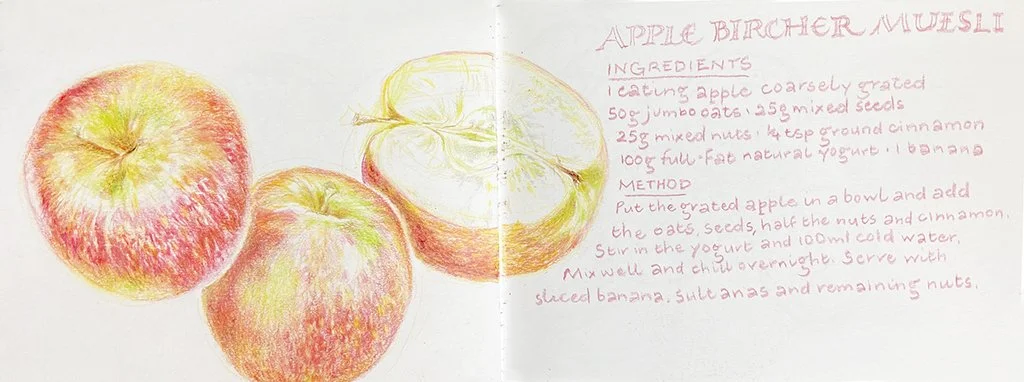 APPLE BIRCHER MUESLI
INGREDIENTS
1 eating apple coarsely grated
50g jumbo oats · 25g mixed seeds
25g mixed nuts · 1/4 tsp ground cinnamon
100g full · Fat natural yogurt · 1 banana
METHOD
Put the grated apple in a bowl and add
the oats, seeds, half the nuts and cinnamon.
Stir in the yogurt and 100ml cold water.
Mix well and chill overnight. Serve with
sliced banana, sultanas and remaining nuts.